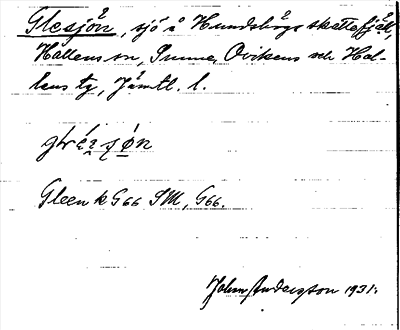 Glesjön, sjö å Hundshögs skattefjäll,
Hallens sn, Sunne, Ovikens och Hal-
lens tg, Jämtl. l.
Gleen k G66 SM, G66.
John Andersson 1931.